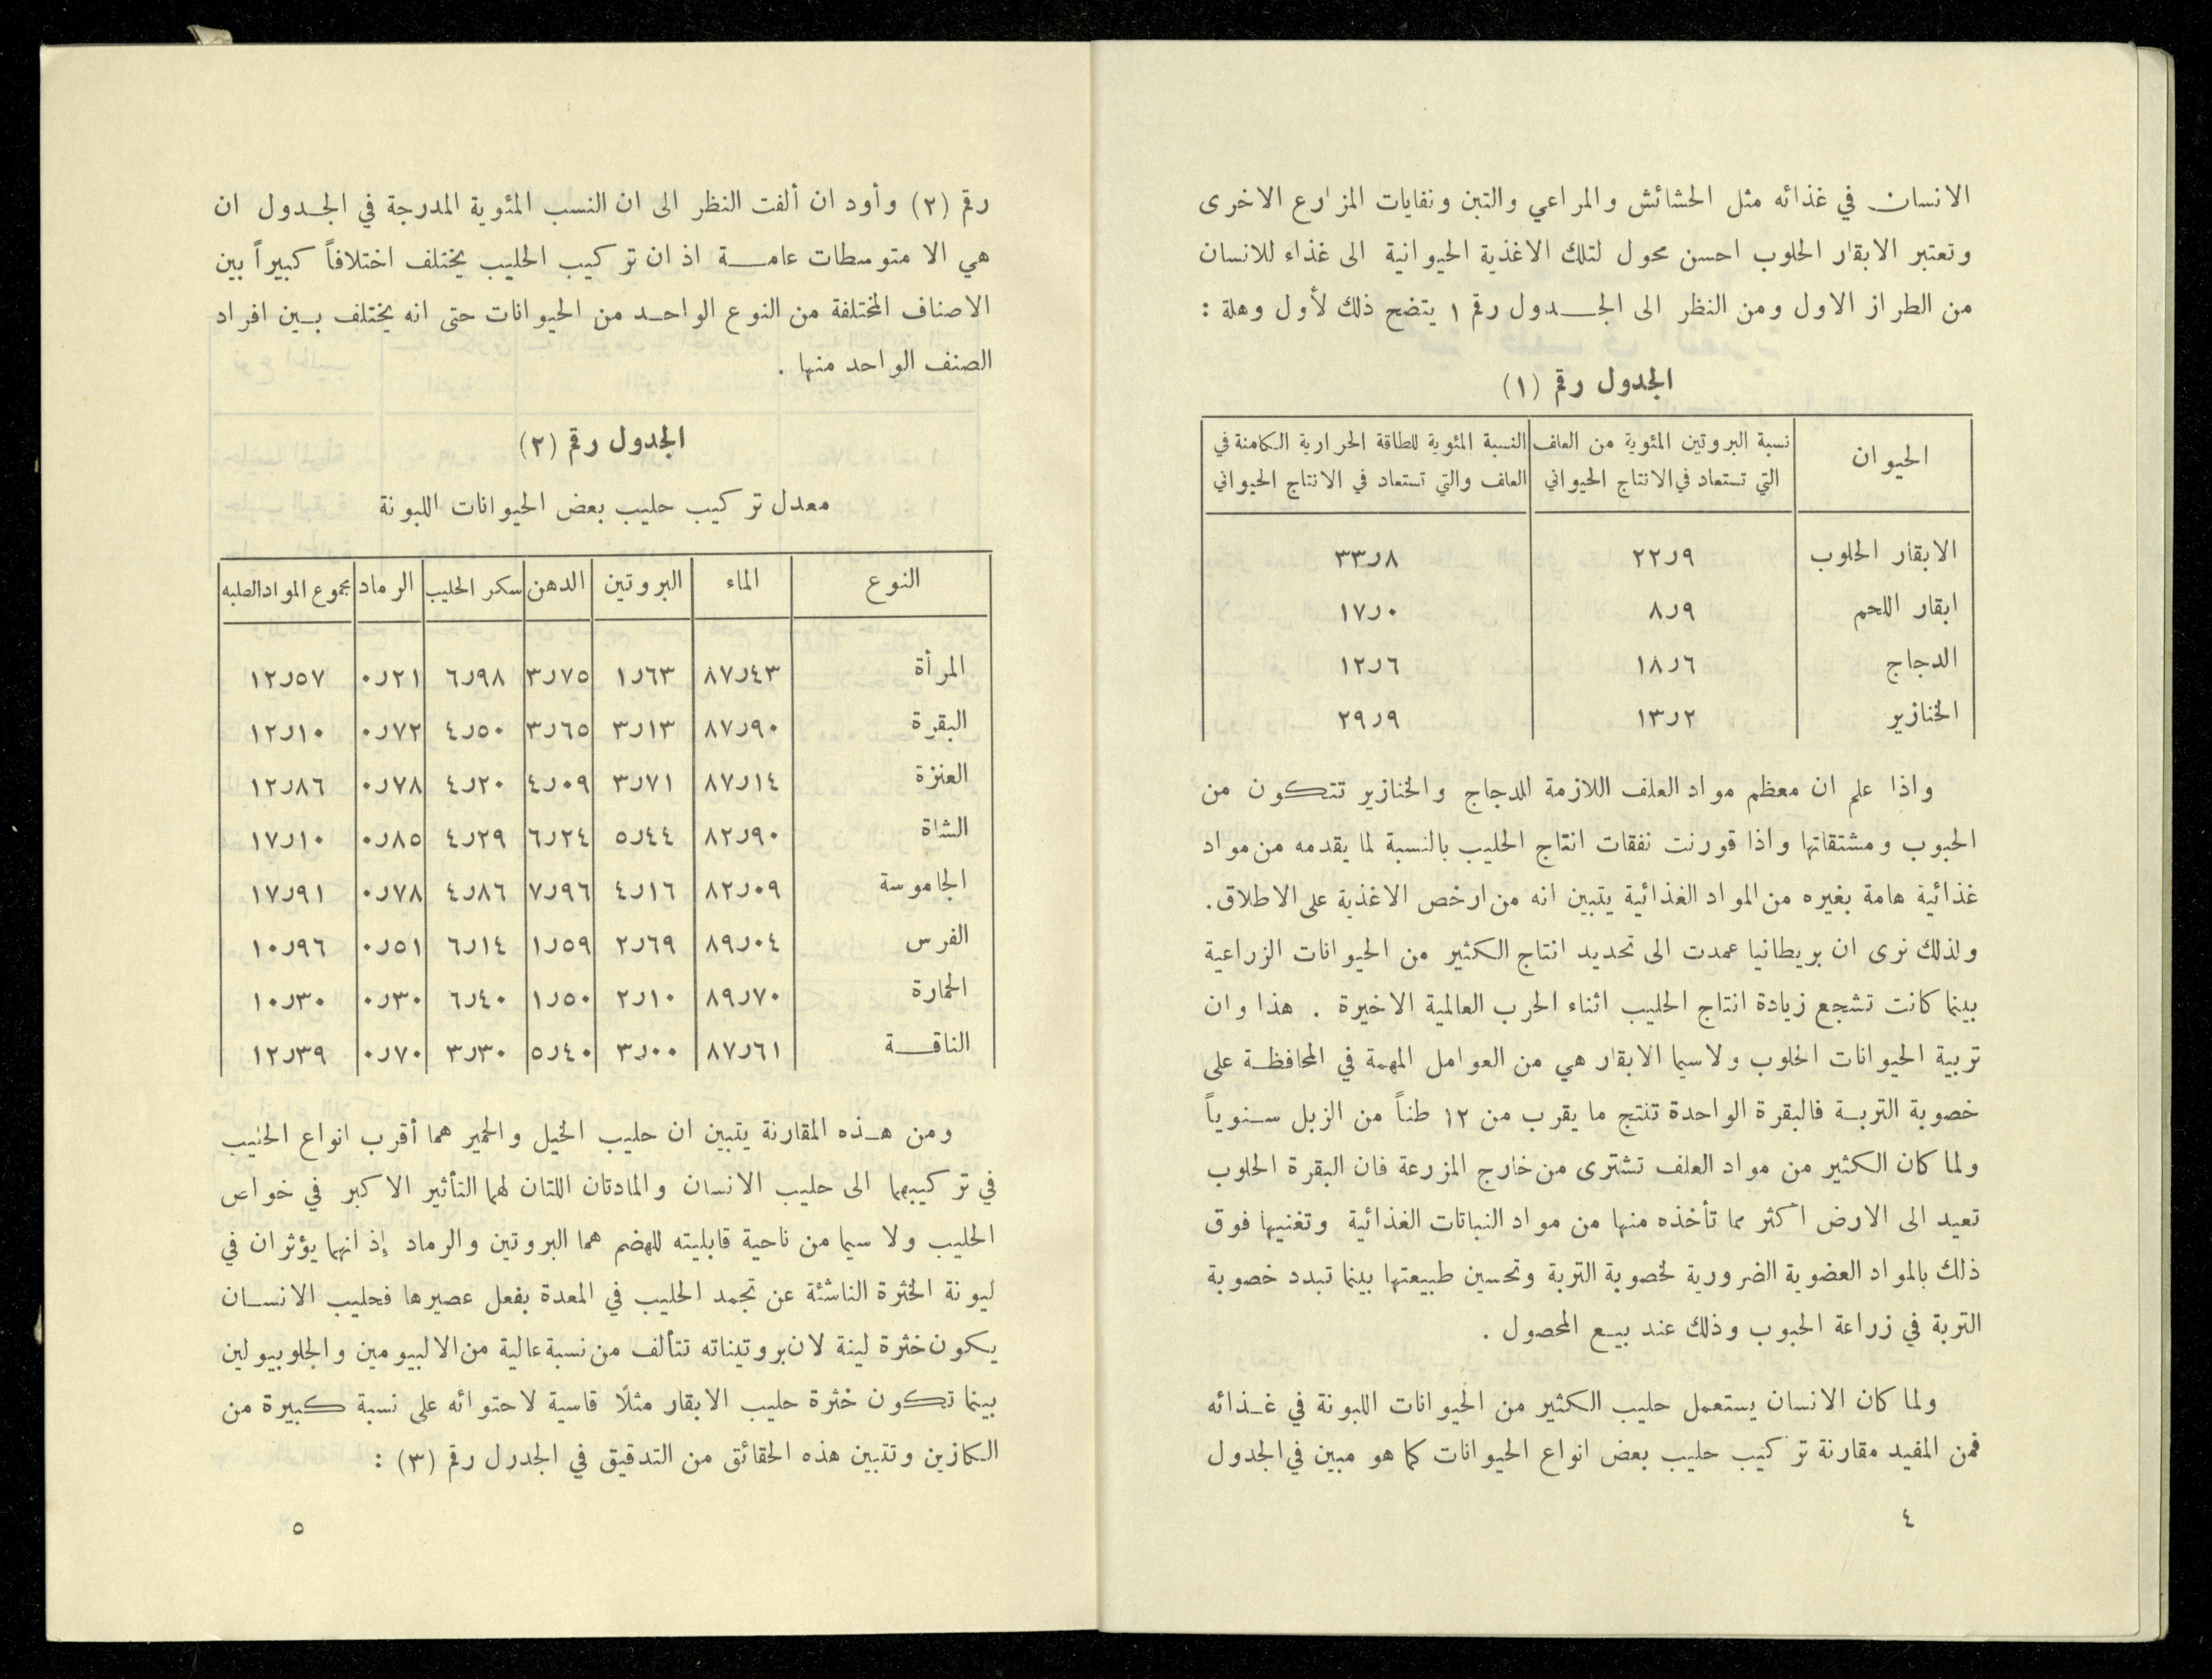 الانسان في غذائه مثل الحشائش والمراعي والتبن ونفايات المزارع الاخرى
وتعتبر الابقار الحلوب احسن محول لتلك الاغذية الحيوانية الى غذاء للانسان
من الطراز الاول ومن النظر الى الجدول رقم ١ يتضح ذلك لأول وهلة :
الجدول رقم (١)
الحيوان | نسبة البروتين المئوية من العلف التي تستعاد في الانتاج الحيواني | النسبة المئوية للطاقة الحرارية الكامنة في العلف والتي تستعاد في الانتاج الحيواني
الابقار الحلوب | ٢٢ر٩ | ٣٣ر٨
ابقار اللحم | ٨ر٩ | ١٧ر٠
الدجاج | ١٨ر٦ | ١٢ر٦
الخنازير | ١٣ر٢ | ٢٩ر٩
واذا علم ان معظم مواد العلف اللازمة للدجاج والخنازير تتكون من
الحبوب ومشتقاتها واذا قورنت نفقات انتاج الحليب بالنسبة لما يقدمه من مواد
غذائية هامة بغيره من المواد الغذائية يتبين انه من ارخص الاغذية على الاطلاق.
ولذلك نرى ان بريطانيا عمدت الى تحديد انتاج الكثير من الحيوانات الزراعية
بينما كانت تشجع زيادة انتاج الحليب اثناء الحرب العالمية الاخيرة . هذا وان
تربية الحيوانات الحلوب ولاسيما الابقار هي من العوامل المهمة في المحافظة على
خصوبة التربة فالبقرة الواحدة تنتج ما يقرب من ١٢ طناً من الزبل سنوياً
ولما كان الكثير من مواد العلف تشترى من خارج المزرعة فان البقرة الحلوب
تعيد الى الارض اكثر مما تأخذه منها من مواد النباتات الغذائية وتغنيها فوق
ذلك بالمواد العضوية الضرورية لخصوبة التربة وتحسين طبيعتها بينما تبدد خصوبة
التربة في زراعة الحبوب وذلك عند بيع المحصول .
ولما كان الانسان يستعمل حليب الكثير من الحيوانات اللبونة في غذائه
فمن المفيد مقارنة تركيب حليب بعض انواع الحيوانات كما هو مبين في الجدول
٤
رقم (٢) وأود ان ألفت النظر الى ان النسب المئوية المدرجة في الجدول ان
هي الا متوسطات عامة اذ ان تركيب الحليب يختلف اختلافاً كبيراً بين
الاصناف المختلفة من النوع الواحد من الحيوانات حتى انه يختلف بين افراد
الصنف الواحد منها .
الجدول رقم (٢)
معدل تركيب حليب بعض الحيوانات اللبونة
النوع | الماء | البروتين | الدهن | سكر الحليب | الرماد | مجموع المواد الصلبه
المرأة | ٨٧ر٤٣ | ١ر٦٣ | ٣ر٧٥ | ٦ر٩٨ | ٠ر٢١ | ١٢ر٥٧
البقرة | ٨٧ر٩٠ | ٣ر١٣ | ٣ر٦٥ | ٤ر٥٠ | ٠ر٧٢ | ١٢ر١٠
العنزة | ٨٧ر١٤ | ٣ر٧١ | ٤ر٠٩ | ٤ر٢٠ | ٠ر٧٨ | ١٢ر٨٦
الشاة | ٨٢ر٩٠ | ٥ر٤٤ | ٦ر٢٤ | ٤ر٢٩ | ٠ر٨٥ | ١٧ر١٠
الجاموسة | ٨٢ر٠٩ | ٤ر١٦ | ٧ر٩٦ | ٤ر٨٦ | ٠ر٧٨ | ١٧ر٩١
الفرس | ٨٩ر٠٤ | ٢ر٦٩ | ١ر٥٩ | ٦ر١٤ | ٠ر٥١ | ١٠ر٩٦
الحمارة | ٨٩ر٧٠ | ٢ر١٠ | ١ر٥٠ | ٦ر٤٠ | ٠ر٣٠ | ١٠ر٣٠
الناقة | ٨٧ر٦١ | ٣ر٠٠ | ٥ر٤٠ | ٣ر٣٠ | ٠ر٧٠ | ١٢ر٣٩
ومن هذه المقارنة يتبين ان حليب الخيل والحمير هما أقرب انواع الحليب
في تركيبهما الى حليب الانسان والمادتان اللتان لهما التأثير الاكبر في خواص
الحليب ولا سيما من ناحية قابليته للهضم هما البروتين والرماد إذ انهما يؤثران في
ليونة الخثرة الناشئة عن تجمد الحليب في المعدة بفعل عصيرها فحليب الانسان
يكون خثرة لينة لان بروتيناته تتألف من نسبة عالية من الالبيومين والجلوبيولين
بينما تكون خثرة حليب الابقار مثلًا قاسية لاحتوائه على نسبة كبيرة من
الكازين وتتبين هذه الحقائق من التدقيق في الجدرل رقم (٣) :
٥